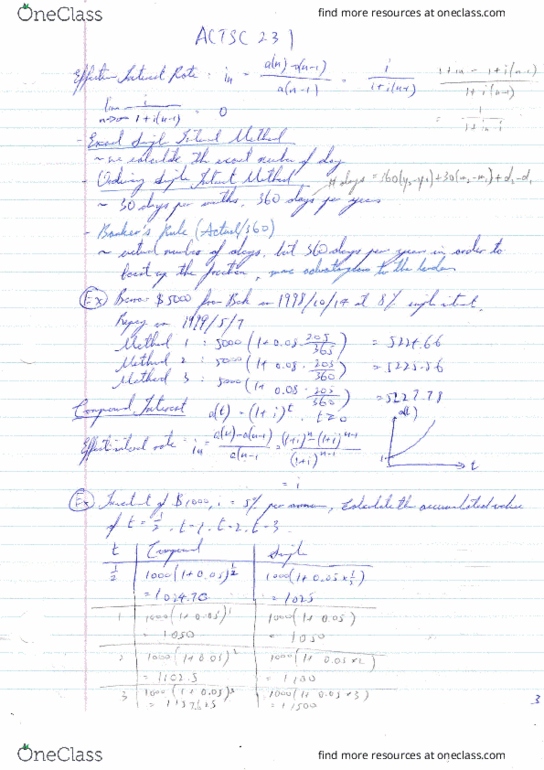 OneClass
find more resources at oneclass.com
ACTSC 231
Effective Interest Rate : in = a(n) - a(n-1) / a(n-1) = i / 1+i(n-1)
1+in - 1+i(n-1) / 1+i(n-1)
= 1 / 1+in-i
lim n→∞ i / 1+i(n-1) = 0
- Exact Simple Interest Method
~ we calculate the exact number of day
- Ordinary Simple Interest Method
# days = 360(y2-y1)+30(m2-m1)+d2-d1
~ 30 days per months, 360 days per years
- Banker's Rule (Actual/360)
~ actual number of days, but 360 days per years in order to
up the fraction, more advantageous to the lender
Ex Borrow $5000 from Bank in 1998/10/14 at 8% simple interest.
Repay on 1999/5/7
Method 1 : 5000 (1+0.08 · 205/365) = 5224.66
Method 2 : 5000 (1+ 0.08 · 203/360) = 5225.56
Method 3 : 5000 (1+ 0.08 · 205/360) = 5227.78
Compound Interest a(t) = (1+i)^t, t≥0
a(t)
1
t
Effective interest rate : in = a(n)-a(n-1) / a(n-1 = (1+i)^n - (1+i)^n-1 / (1+i)^n-1
= i
Ex Investment of $1000, i = 5% per annum, Calculate the accumulated value
of t = 1/2, t=1, t=2, t=3.
t Compound Simple
1/2 1000(1+0.05)^1/2 1000(1+0.05×1/2)
= 1024.70 = 1025
1 1000(1+0.05)^1 1000(1+ 0.05)
= 1050 = 1050
2 1000(1+0.05)^2 1000(1+ 0.05×2)
= 1102.5 = 1100
3 1000(1+0.05)^3 1000(1+ 0.05×3)
3
OneClass
find more resources at oneclass.com